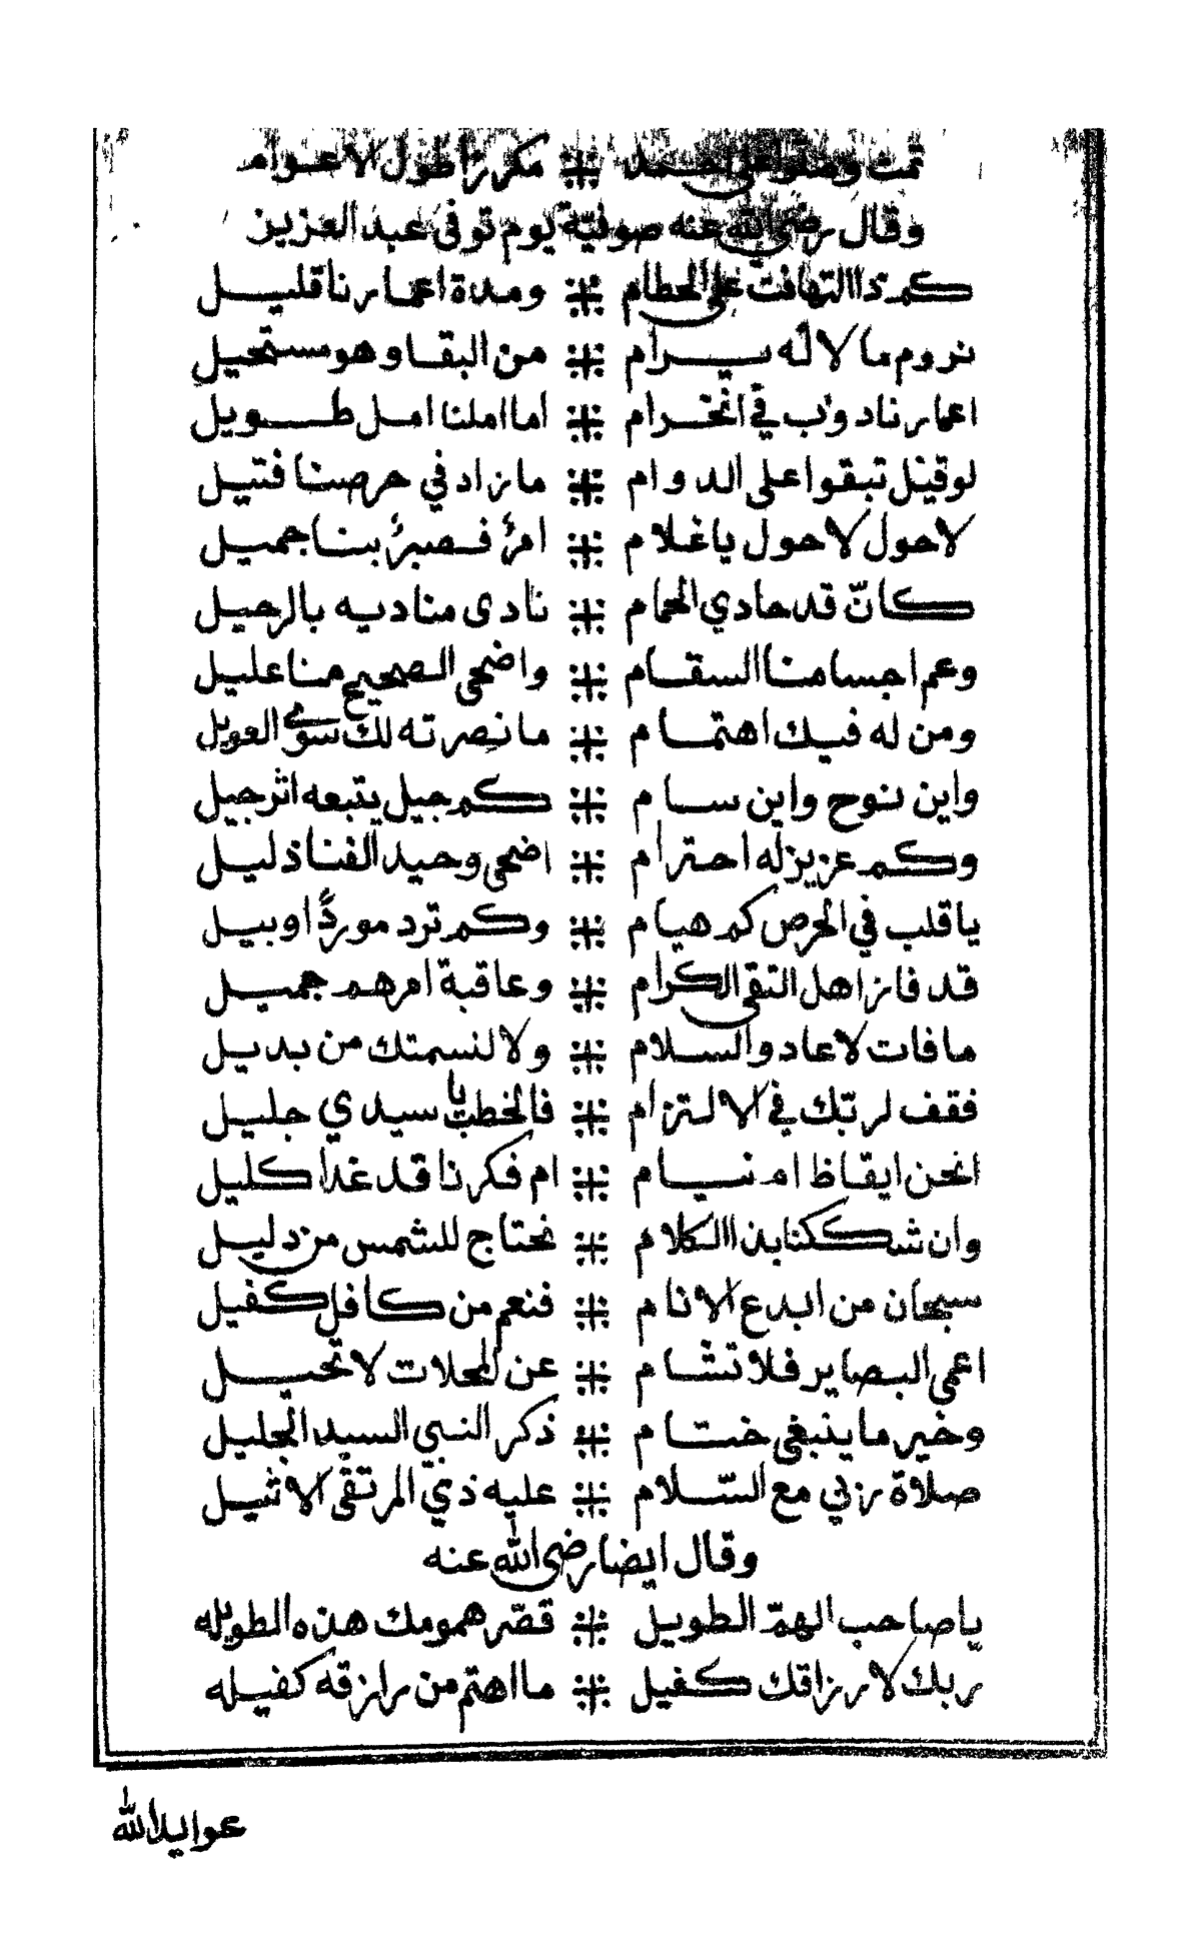 تمت وصلوا على احمد ⁘ مكررًا طول الاعوام
وقال رضي الله عنه صوفية يوم توفى عبد العزيز
كم ذا التهافت على الحطام ⁘ ومدة اعمارنا قليل
نروم ما لا له يرام ⁘ من البقا وهو مستحيل
اعمارنا دوب في انخرام ⁘ اما املنا امل طويل
لو قيل تبقوا على الدوام ⁘ ما زاد في حرصنا فتيل
لا حول لا حول يا غلام ⁘ امرٌ فصبرٌ بنا جميل
كانّ قد حادي الحمام ⁘ نادى مناديه بالرحيل
وعم اجسامنا السقام ⁘ واضحى الصحيح منا عليل
ومن له فيك اهتمام ⁘ ما نصرته لك سوى العويل
واين نوح واين سام ⁘ كم جيل يتبعه اثر جيل
وكم عزيز له احترام ⁘ اضحى وحيد الفنا ذليل
يا قلب في الحرص كم هيام ⁘ وكم ترد موردًا وبيل
قد فاز اهل التقى الكرام ⁘ وعاقبة امرهم جميل
ما فات لا عاد والسلام ⁘ ولا لنسمتك من بديل
فقف لربّك في الالتزام ⁘ فالخطب يا سيدي جليل
انحن ايقاظ ام نيام ⁘ ام فكرنا قد غدا كليل
وان شككنا بذا الكلام ⁘ نحتاج للشمس من دليل
سبحان من ابدع الانام ⁘ فنعم من كافل كفيل
اعمى البصاير فلا تشام ⁘ عن المحلات لا تحيل
وخير ما ينبغي ختام ⁘ ذكر النبي السيد الجليل
صلاة ربي مع السّلام ⁘ عليه ذي المرتقى الاثيل
وقال ايضا رضي الله عنه
يا صاحب الهمّ الطويل ⁘ قصّر همومك هذه الطويله
ربك لارزاقك كفيل ⁘ ما اهتم من رازقه كفيله
عوايد الله